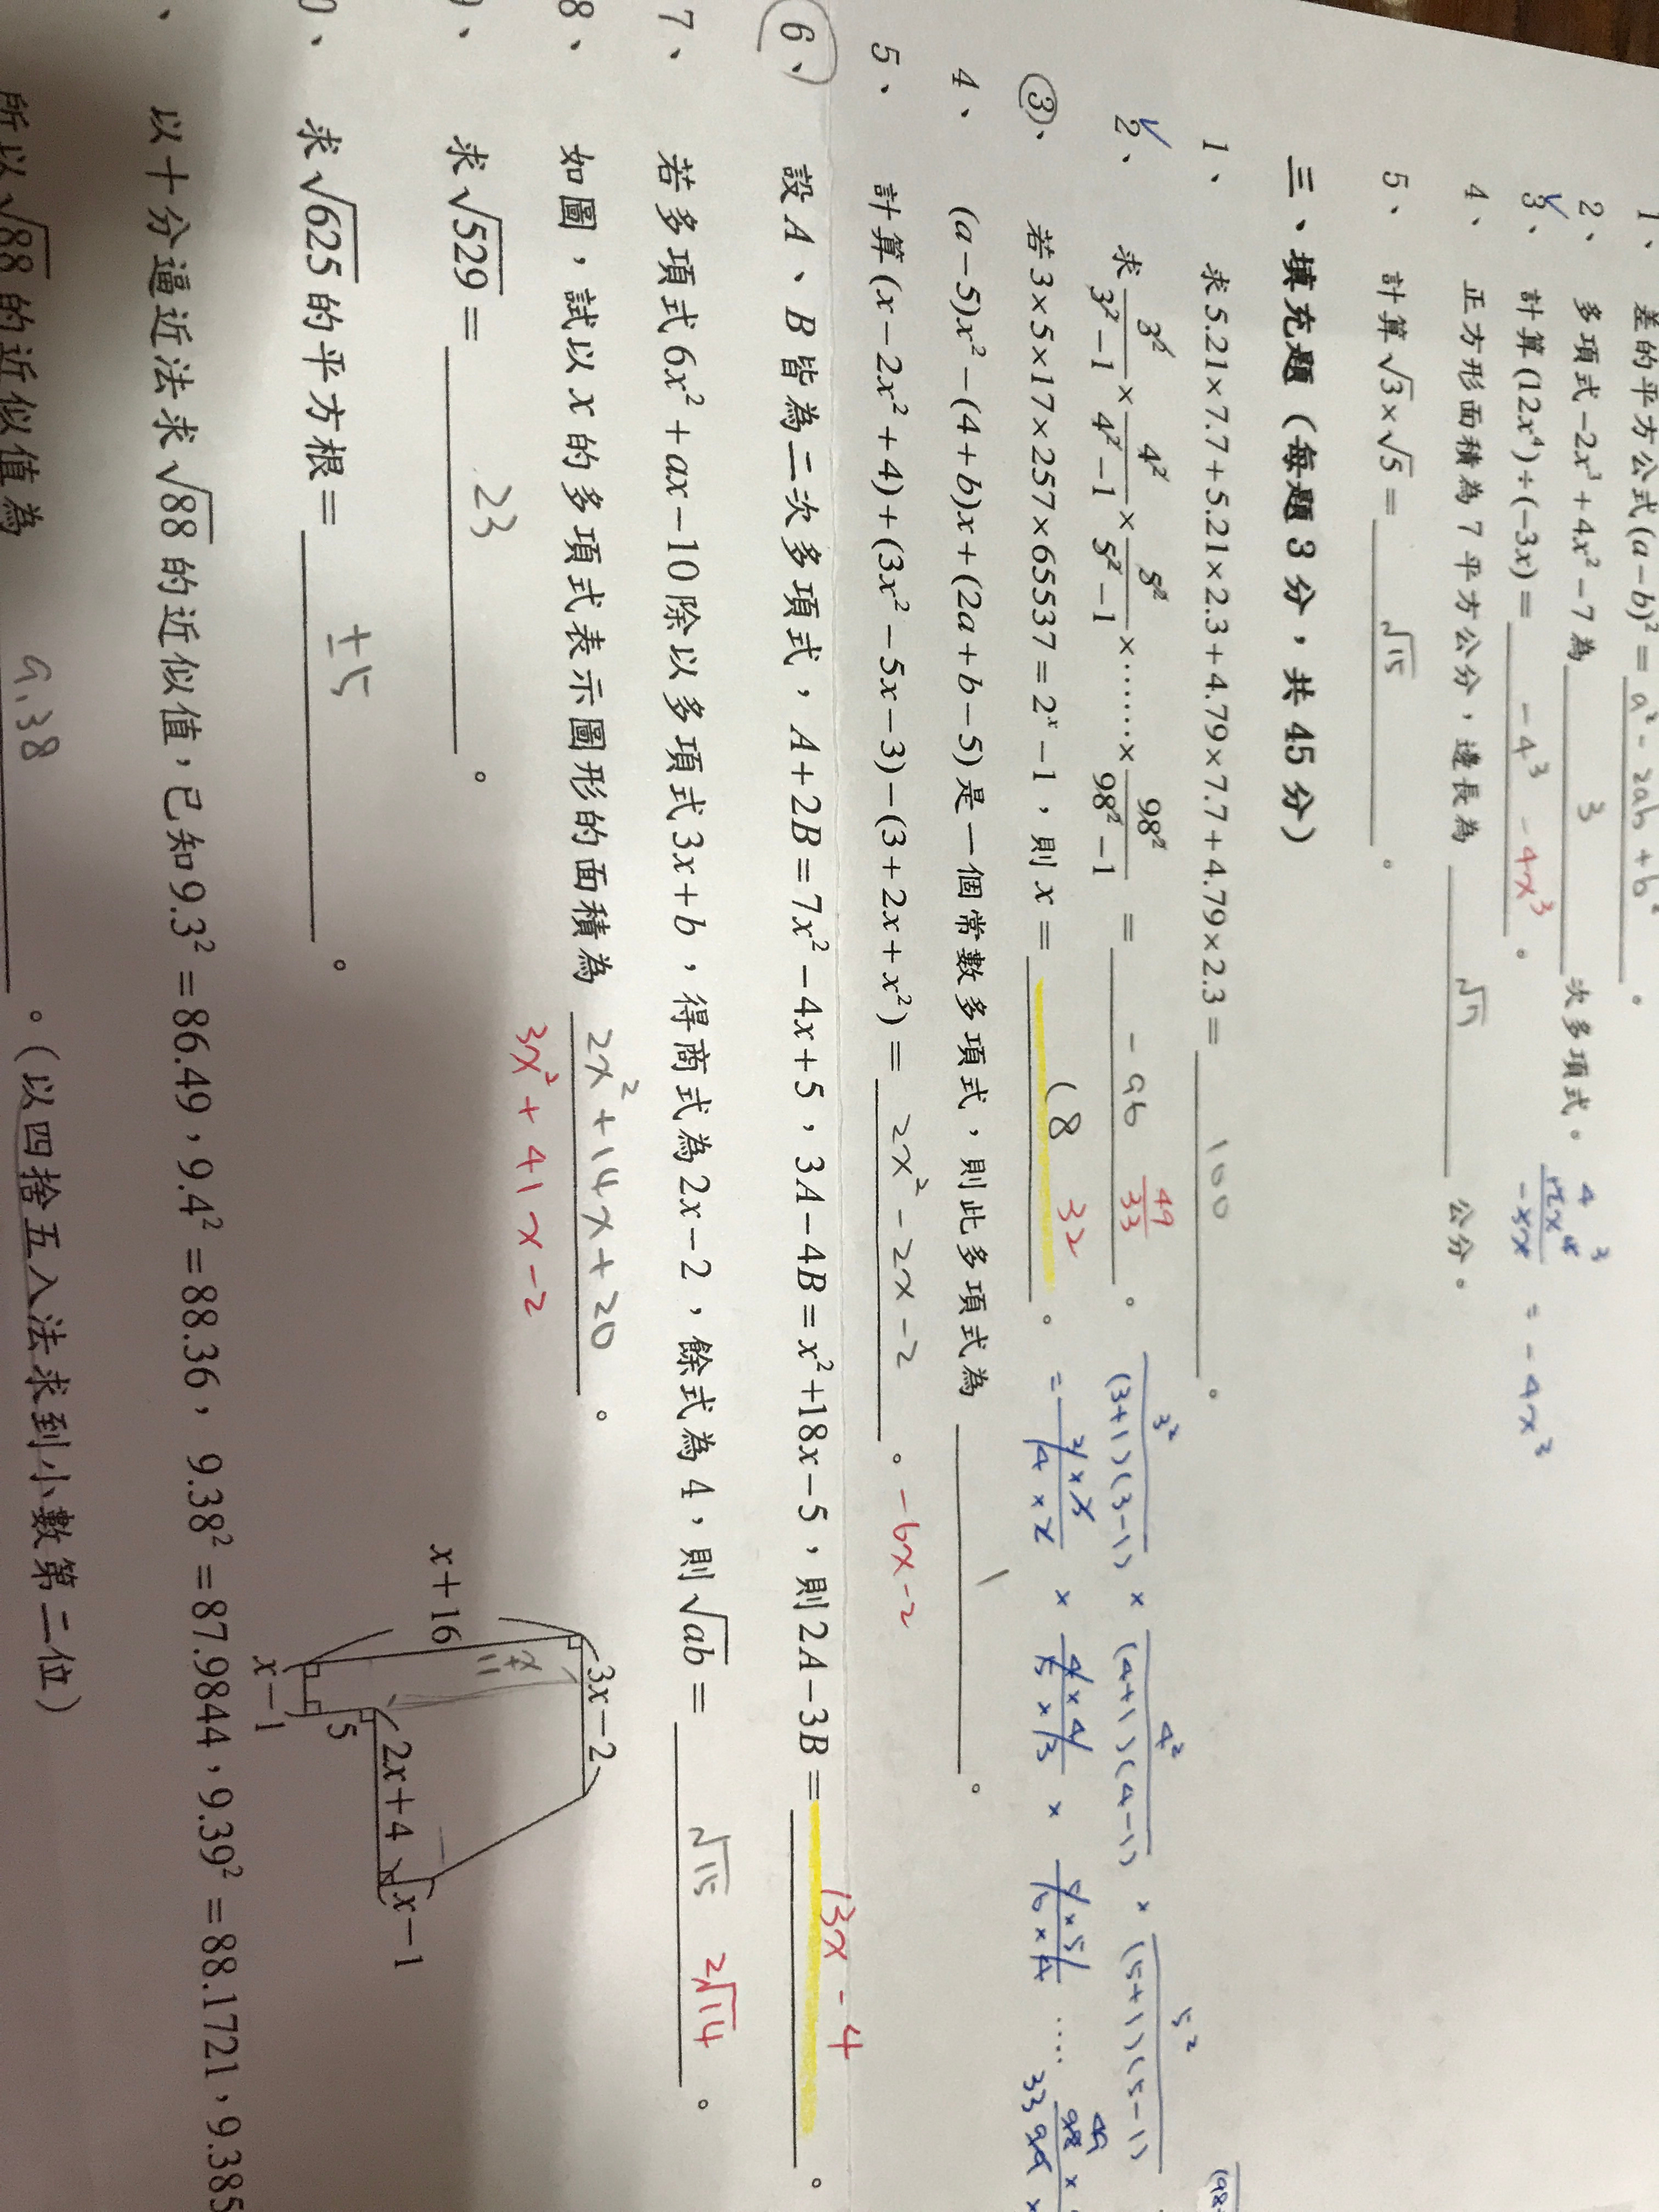 1、 差的平方公式(a－b)²＝ a²－2ab＋b² 。
2、 多項式－2x³＋4x²－7為 3 次多項式。
✓3、 計算(12x⁴)÷(－3x)＝ －4³ －4x³ 。
4 3
12x⁴
－3x ＝－4x³
4、 正方形面積為 7 平方公分，邊長為 √7 公分。
5、 計算√3×√5＝ √15 。
三、填充題（每題 3 分，共 45 分）
1、 求5.21×7.7＋5.21×2.3＋4.79×7.7＋4.79×2.3＝ 100 。
✓2、 求 3²/(3²－1) × 4²/(4²－1) × 5²/(5²－1) ×……× 98²/(98²－1) ＝ －96 49/33 。
3²/((3+1)(3-1)) × 4²/((4+1)(4-1)) × 5²/((5+1)(5-1))
③、 若3×5×17×257×65537＝2ˣ－1，則x＝ (8 32 。
＝ 3×3/4×2 × 4×4/5×3 × 5×5/6×4 ….
49
98 ×
33 99 ×
4、 (a－5)x²－(4＋b)x＋(2a＋b－5)是一個常數多項式，則此多項式為 1 。
5、 計算(x－2x²＋4)＋(3x²－5x－3)－(3＋2x＋x²)＝ 2x²－2x－2 。 －6x－2
⑥、 設A、B皆為二次多項式，A＋2B＝7x²－4x＋5，3A－4B＝x²＋18x－5，則2A－3B＝ 13x－4 。
7、 若多項式6x²＋ax－10除以多項式3x＋b，得商式為2x－2，餘式為4，則√ab＝ √15 2√14 。
8、 如圖，試以x的多項式表示圖形的面積為 2x²＋14x＋20 。
3x²＋41x－2
3x－2
x＋16
x－1
5
2x＋4
x－1
x
11
9、 求√529＝ 23 。
0、 求√625的平方根＝ ±5 。
、 以十分逼近法求√88的近似值，已知9.3²＝86.49，9.4²＝88.36，9.38²＝87.9844，9.39²＝88.1721，9.385
所以√88的近似值為 9.38 。（以四捨五入法求到小數第二位）